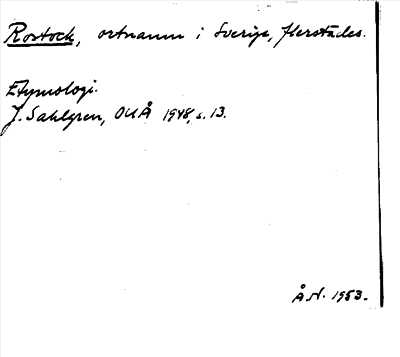 Rostock, ortnamn i Sverige, flerstädes.
Etymologi.
J. Sahlgren, OUÅ 1948, s. 13.
Å.N. 1953.